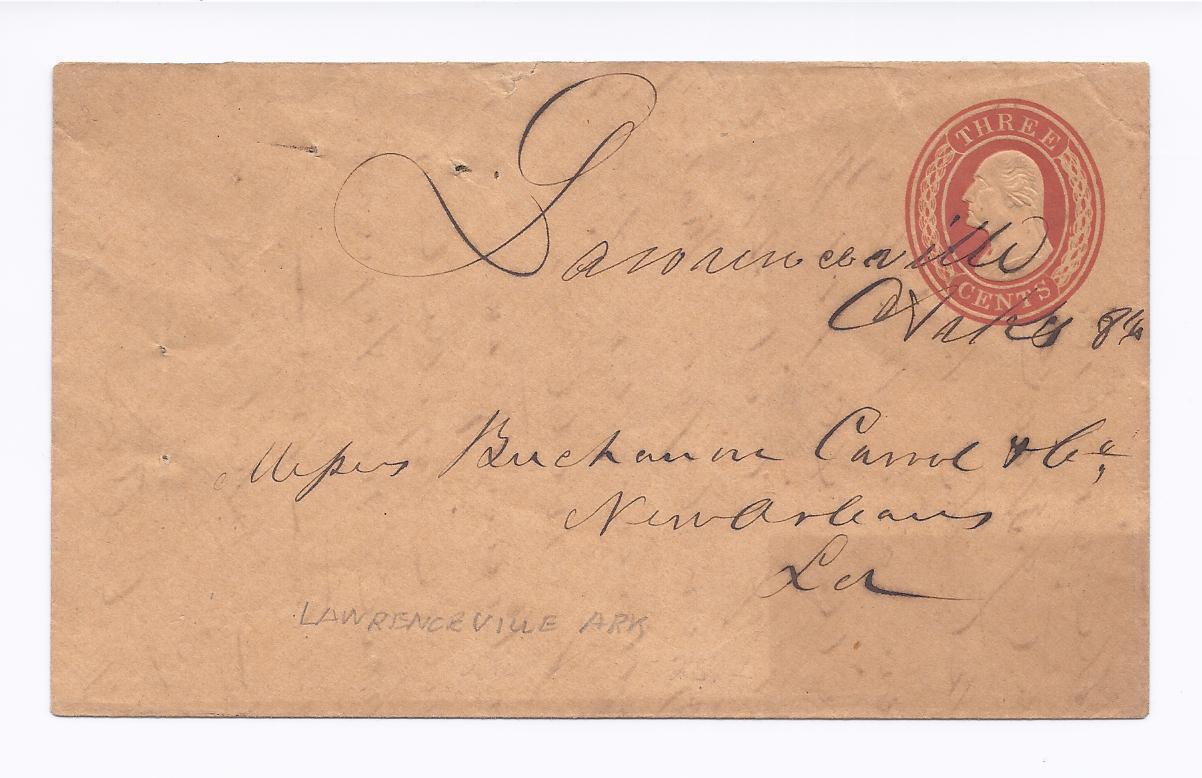 THREE
CENTS
Lawrenceville
Arks 8th
Messrs Buchanon Carrol & Co,
New Orleans
La
LAWRENCEVILLE ARK